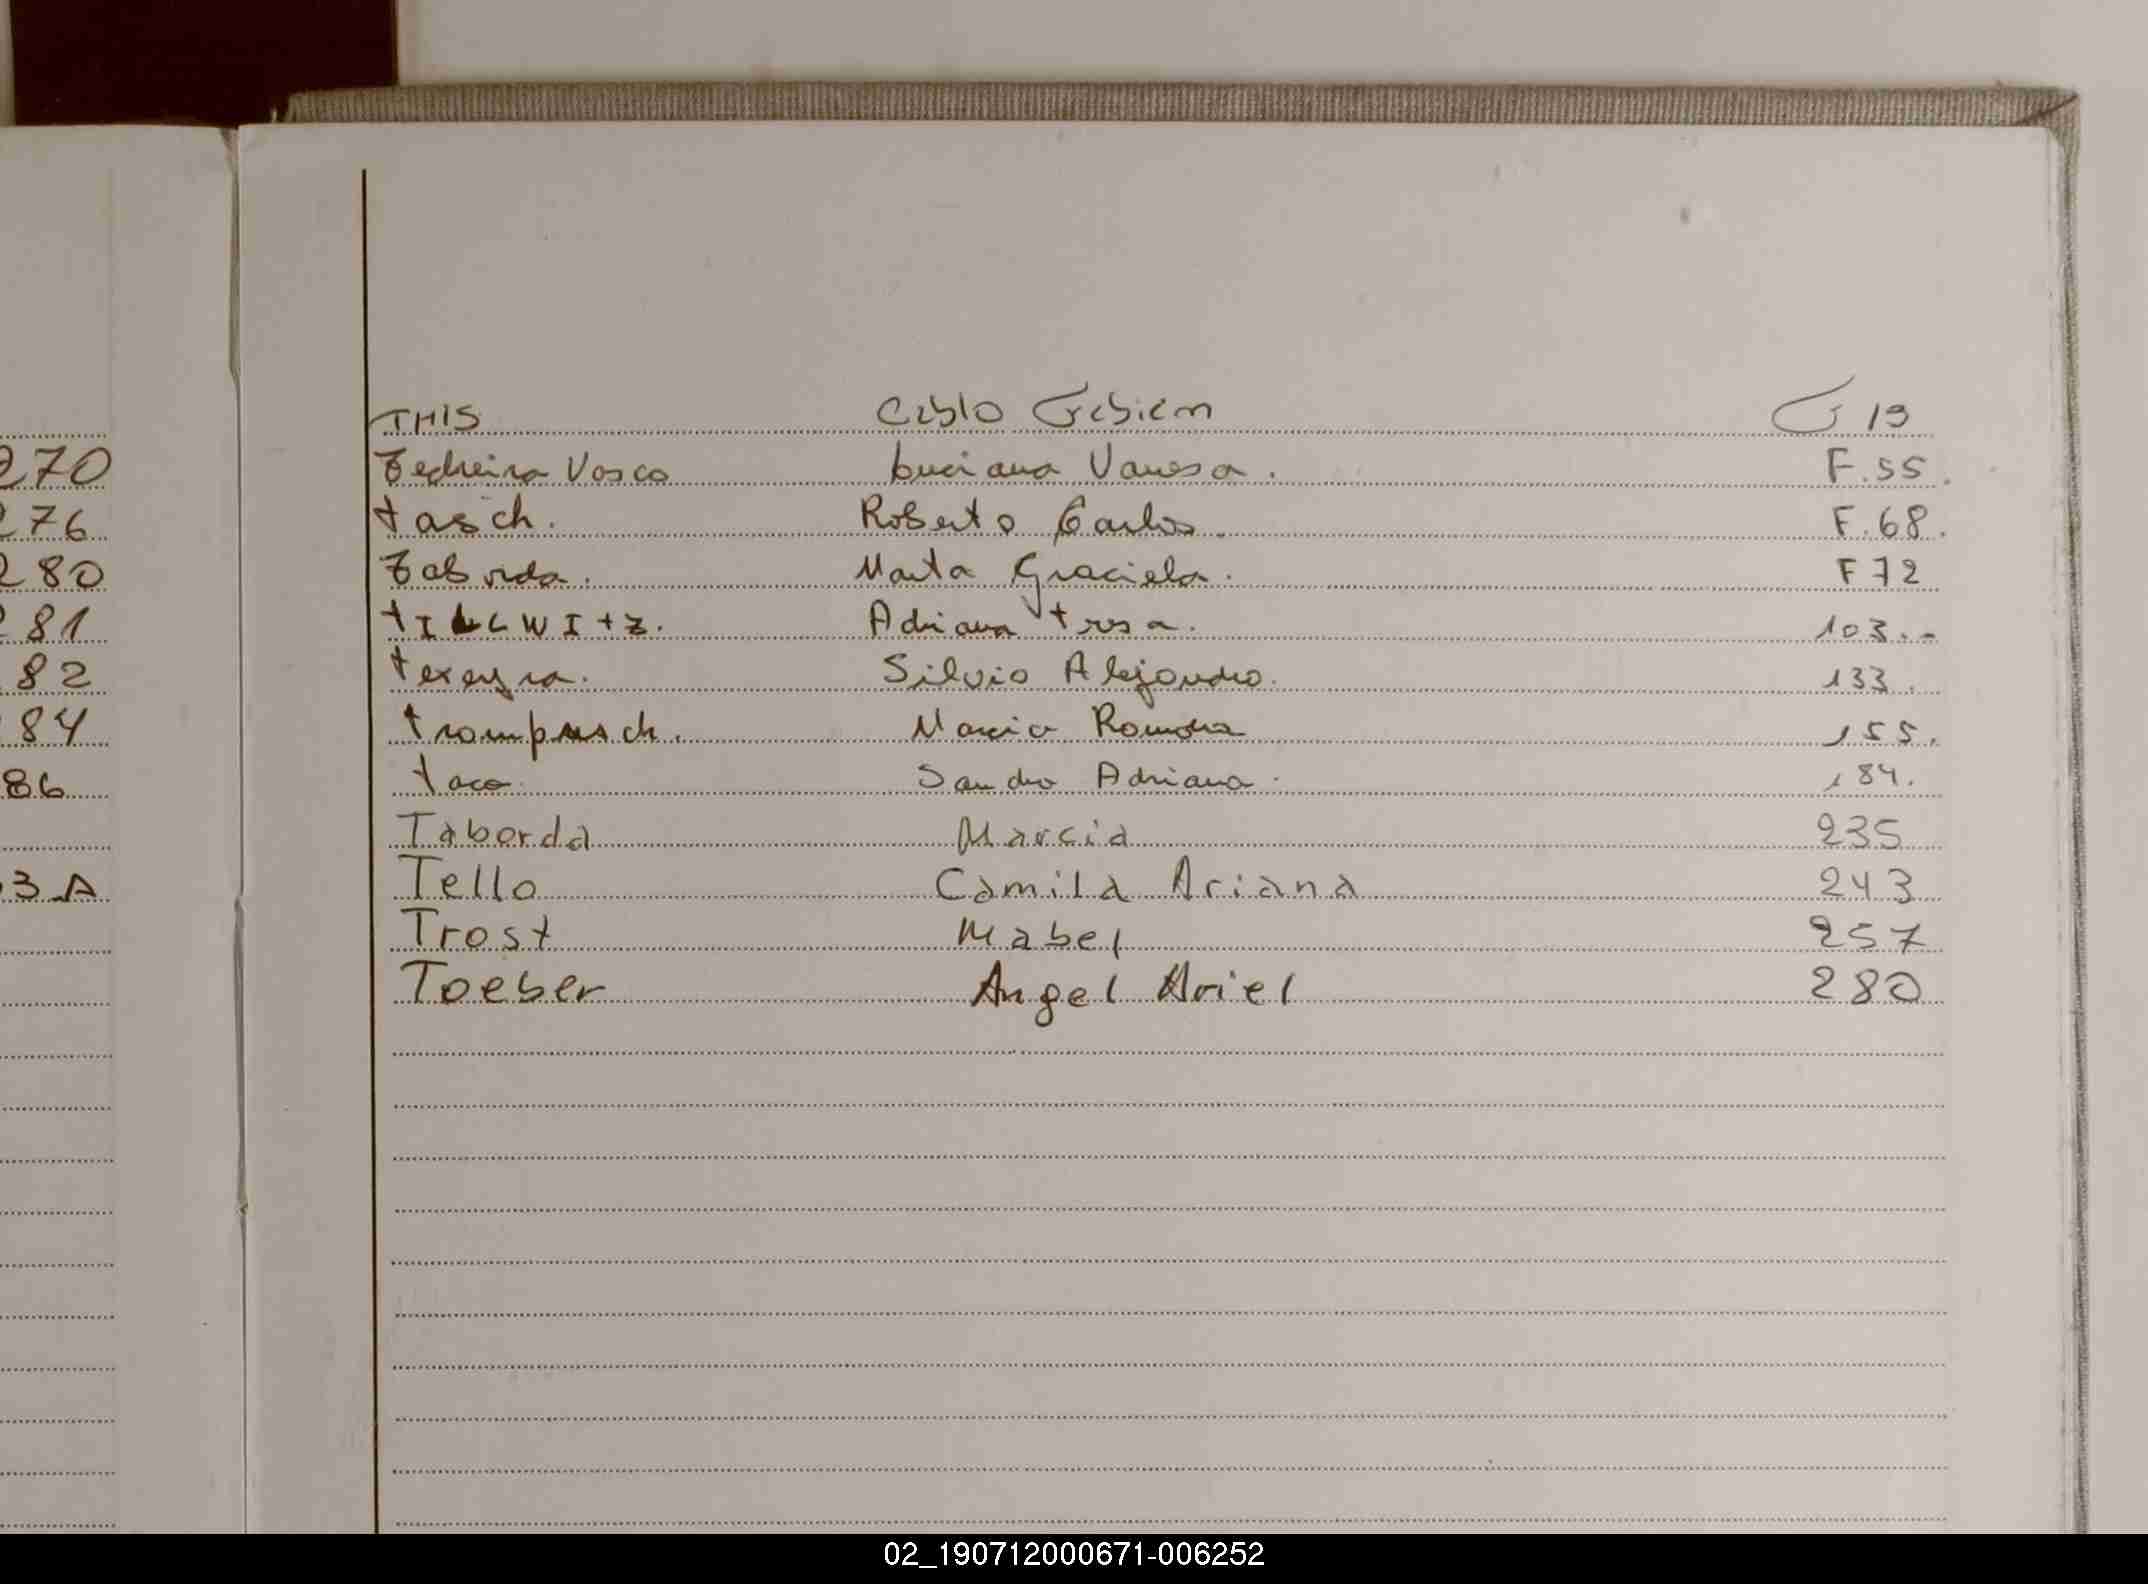 270
276
280
281
82
84
86
3 A
THIS Fabien F 19
Tedreira Vasco Luciana Vanesa. F.55.
tasch. Roberto Carlos. F.68.
Taborda. Marta Graciela. F 72
Adriana 103.-
texeyra. Silvio Alejandro. 133.
Romina 155.
taca. Sandra Adriana. 184.
Taborda Marcia 235
Tello Camila Ariana 243
Trost Mabel 257
Toeber Angel Ariel 280
02_190712000671-006252